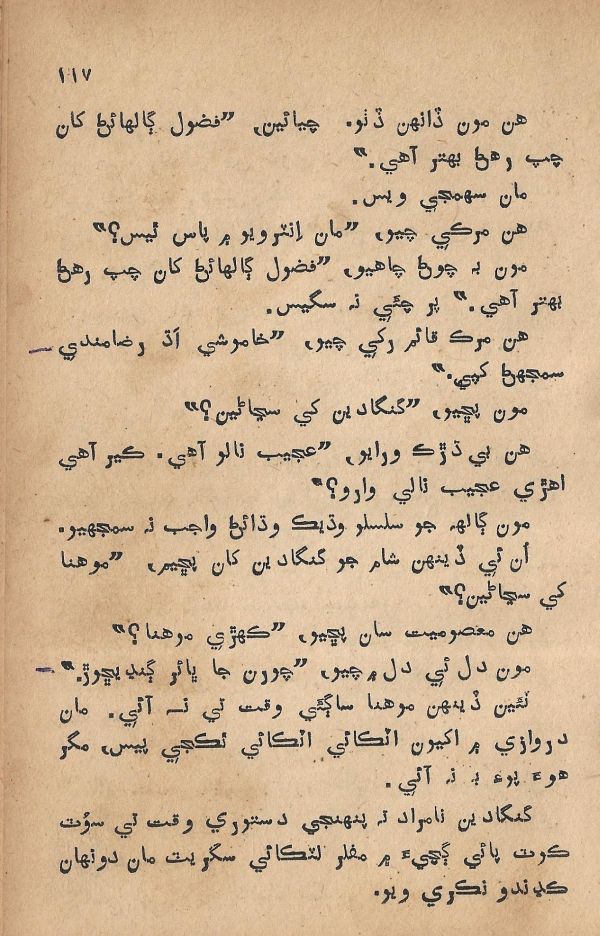 ١١٧
هن مون ڏانهن ڏٺو. چيائين، ”فضول ڳالهائڻ کان
چپ رهڻ بهتر آهي.“
مان سمجهي ويس.
هن مرڪي چيو، ”مان اِنٽرويو ۾ پاس ٿيس؟“
مون به چوڻ چاهيو، ”فضول ڳالهائڻ کان چپ رهڻ
بهتر آهي.“ پر چئي نه سگيس.
هن مرڪ قائم رکي چيو، ”خاموشي اَڌ رضامندي
سمجهڻ کپي.“
مون پڇيو، ”گنگادين کي سڃاڻين؟“
هن بي ڌڙڪ ورايو، ”عجيب نالو آهي. ڪير آهي
اهڙي عجيب نالي وارو؟“
مون ڳالهه جو سلسلو وڌيڪ وڌائڻ واجب نه سمجهيو.
اُن ئي ڏينهن شام جو گنگادين کان پڇيم، ”موهنا
کي سڃاڻين؟“
هن معصوميت سان پڇيو، ”ڪهڙي موهنا؟“
مون دل ئي دل ۾ چيو، ”چورن جا ڀائر ڳنڍيڇوڙ.“
ٻئين ڏينهن موهنا ساڳئي وقت تي نه آئي. مان
دروازي ۾ اکيون اٽڪائي اٽڪائي ٿڪجي پيس، مگر
هوءَ پوءِ به نه آئي.
گنگادين نامراد ته پنهنجي دستوري وقت تي سوُٽ
ڪوٽ پائي ڳچيءَ ۾ مفلر لٽڪائي سگريٽ مان دونهان
ڪڍندو نڪري ويو.